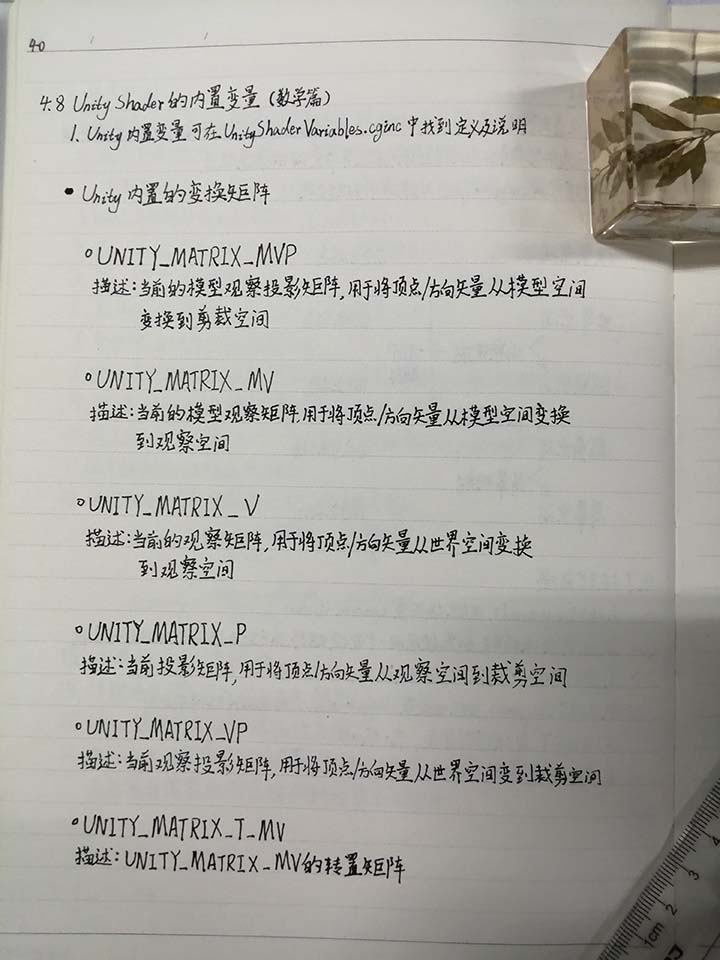 40
4.8 Unity Shader的内置变量(数学篇)
1. Unity内置变量可在UnityShaderVariables.cginc中找到定义及说明
• Unity内置的变换矩阵
○ UNITY_MATRIX_MVP
描述:当前的模型观察投影矩阵,用于将顶点/方向矢量从模型空间
变换到剪裁空间
○ UNITY_MATRIX_MV
描述:当前的模型观察矩阵,用于将顶点/方向矢量从模型空间变换
到观察空间
○ UNITY_MATRIX_V
描述:当前的观察矩阵,用于将顶点/方向矢量从世界空间变换
到观察空间
○ UNITY_MATRIX_P
描述:当前投影矩阵,用于将顶点/方向矢量从观察空间到裁剪空间
○ UNITY_MATRIX_VP
描述:当前观察投影矩阵,用于将顶点/方向矢量从世界空间变到裁剪空间
○ UNITY_MATRIX_T_MV
描述:UNITY_MATRIX_MV的转置矩阵
1cm 2 3 4